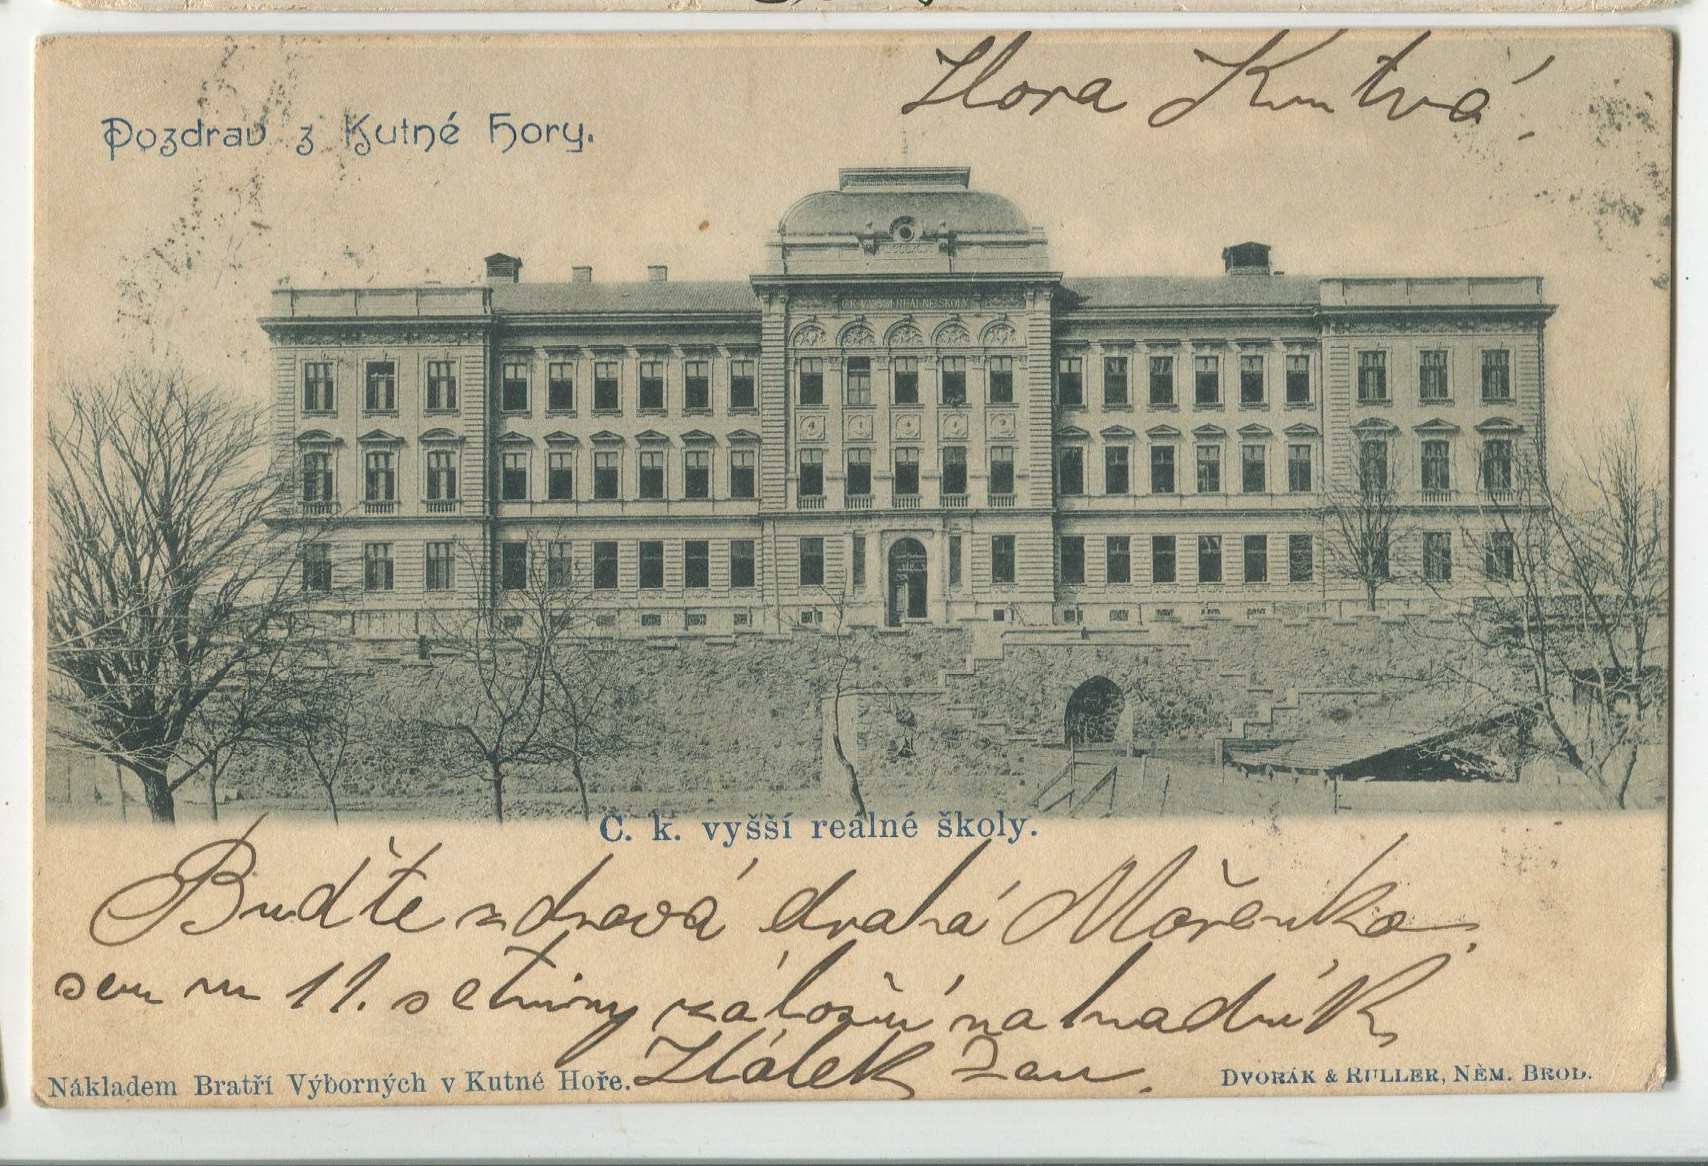 Hora Kutná.
Pozdrav z Kutné Hory.
C. K. VYŠŠÍ REÁLNÉ ŠKOLY
C. k. vyšší reálné školy.
Buďte zdravá drahá Mařenko
sem 11. setniny záložní na hradní
Hálek Jan.
Nákladem Bratří Výborných v Kutné Hoře.
DVOŘÁK & RULLER, NĚM. BROD.